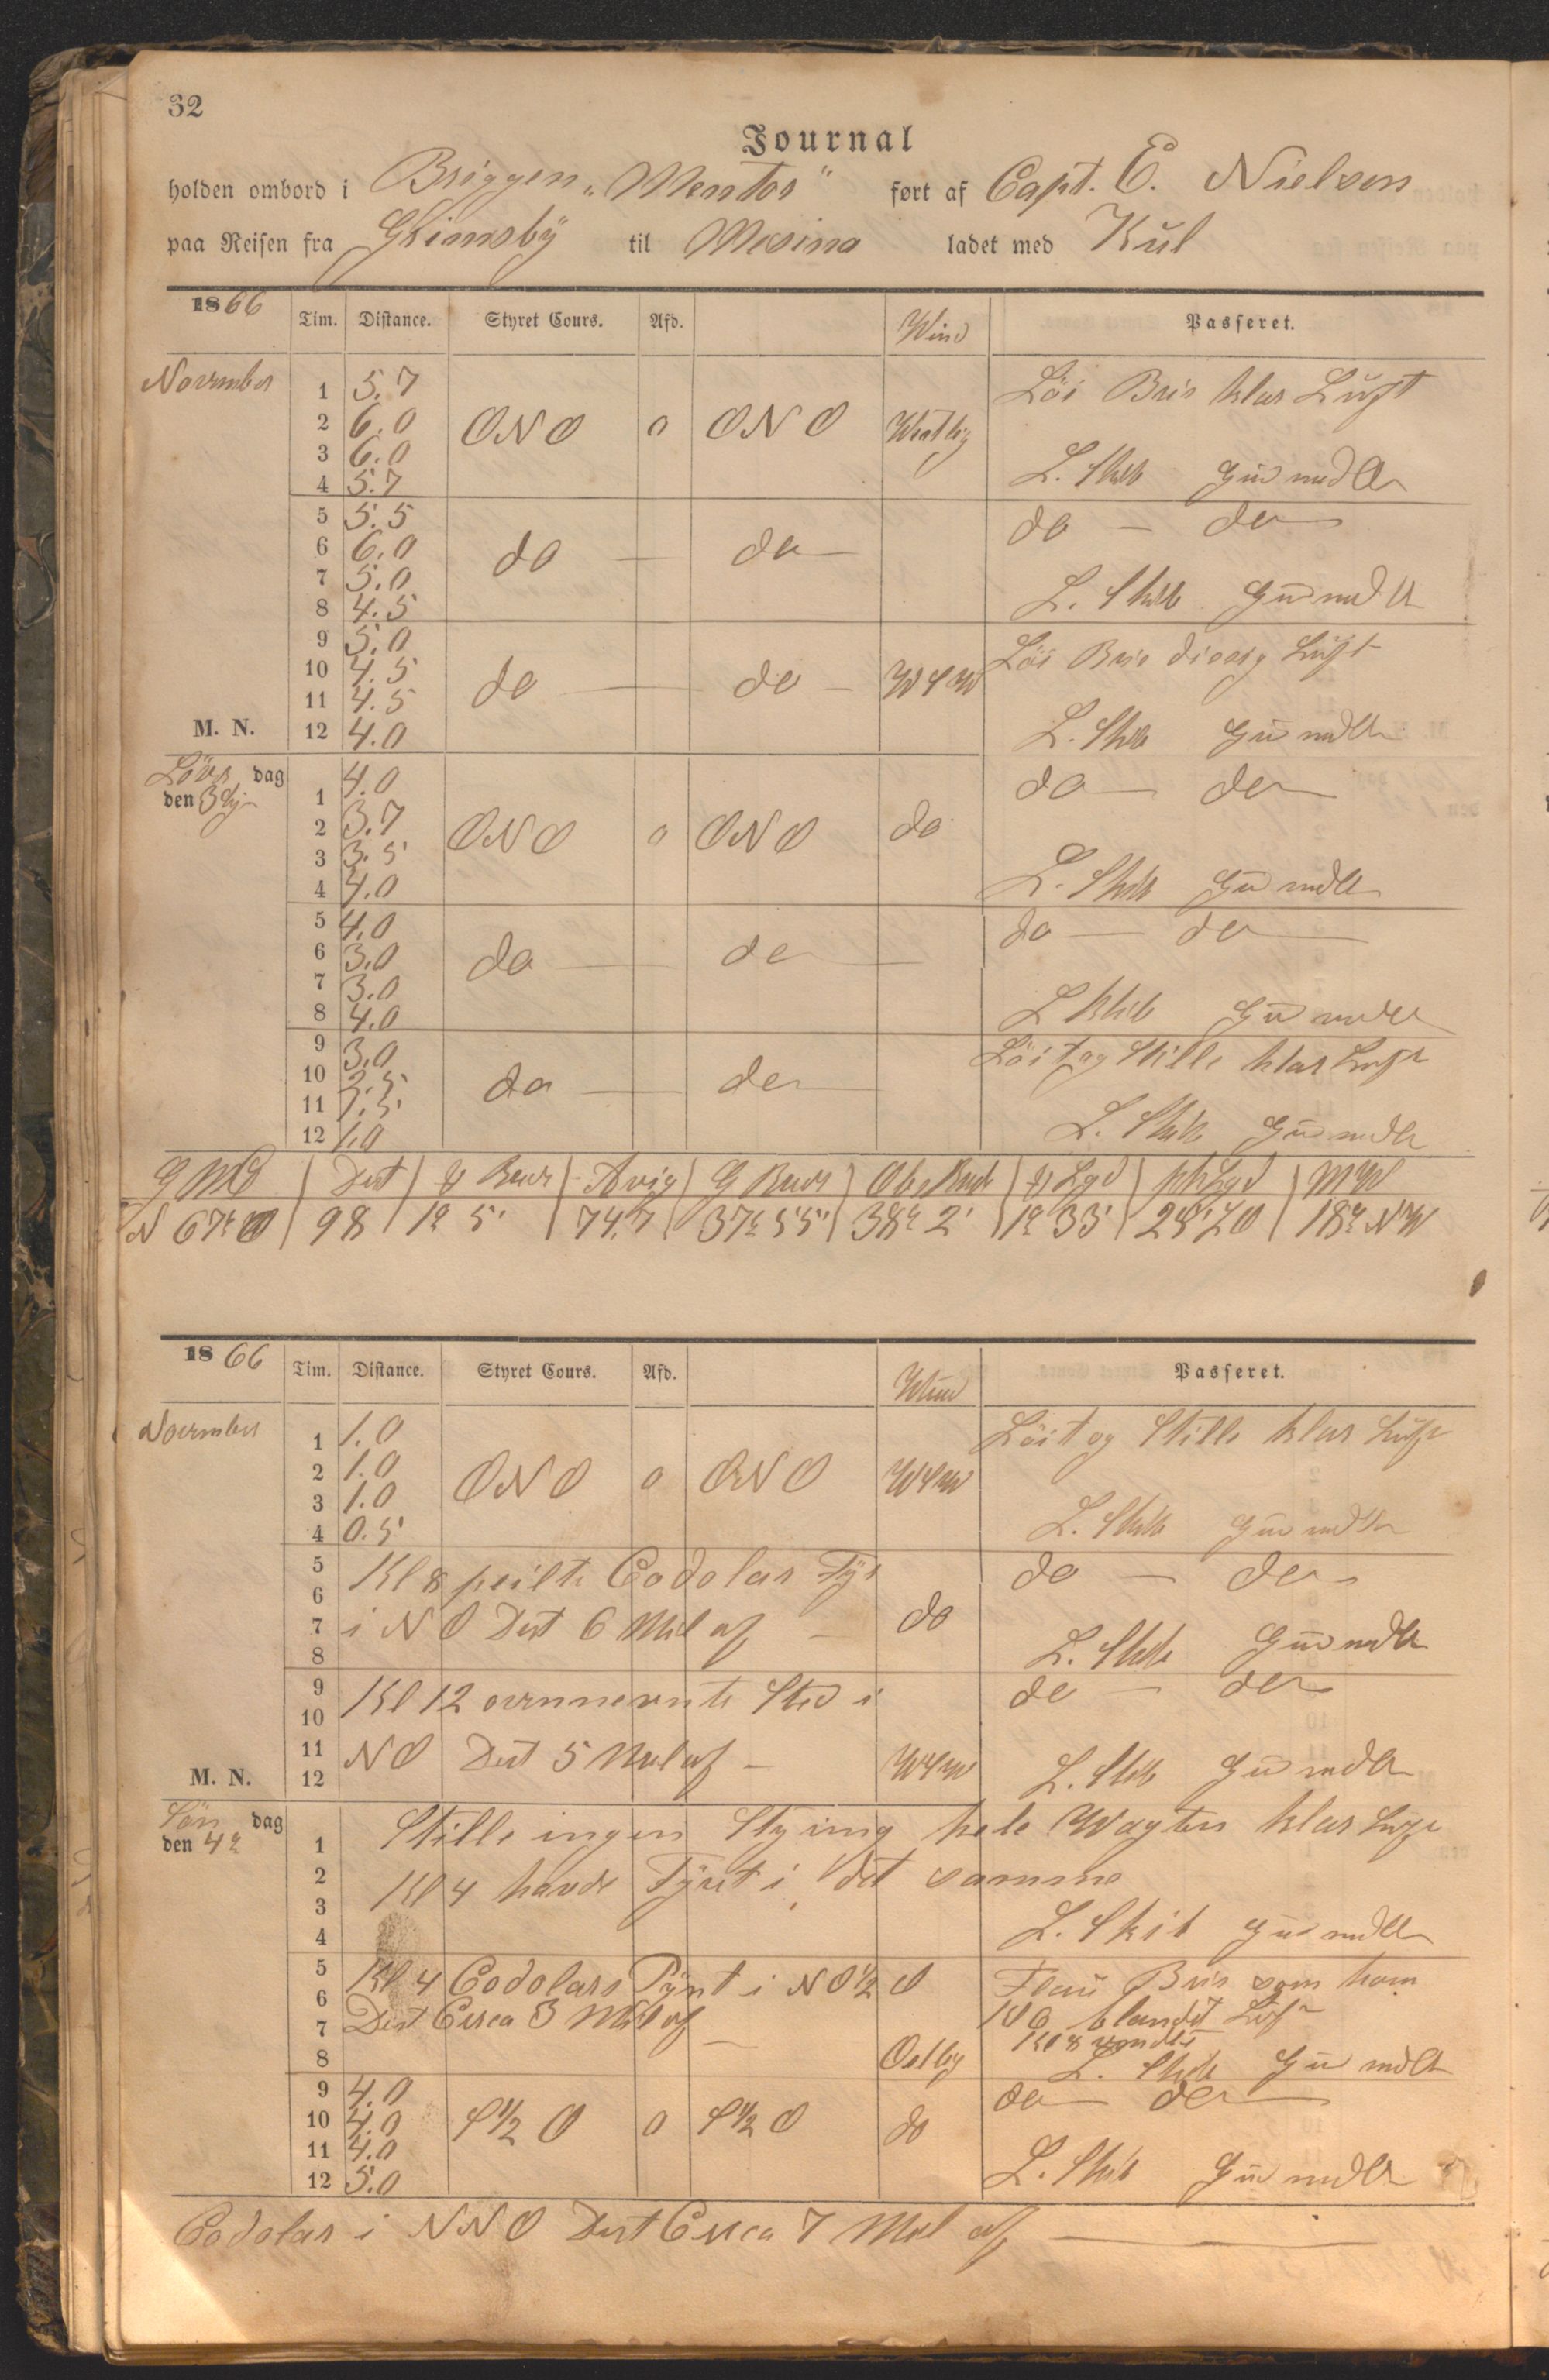 32
Journal
holden ombord i Briggen „Mentor" ført af Capt. E. Nielsen
paa Reisen fra Grimsbÿ til Mesina ladet med Kul
1866 Tim. Distance. Styret Cours. Afd. Wind Passeret.
November
1 5.7 Löi Bris klar Luft
2 6.0 ONO 0 ONO Westlig
3 6.0
4 5.7 L. Skib Gud med Os
5 5.5 do — do
6 6.0 do — do —
7 5.0
8 4.5 L. Skib Gud med
9 5.0 Löi Bris diesig Luft
10 4.5 do — do — WSW
11 4.5
M. N. 12 4.0 L. Skib Gud med
Löver dag den 3die
1 4.0 do — do
2 3.7 ONO 0 ONO do
3 3.5
4 4.0 L. Skib Gud med
5 4.0 do — do
6 3.0 do — do —
7 3.0
8 4.0 L Skib Gud med
9 3.0 Löit og Stille klar Luft
10 2.5 do — do
11 1.5
12 1.0 L. Skib Gud med
Dist Avig G Obs
N 67 98 1° 5' 74.7 37° 55' 38° 2' 1° 33' 18° NW
1866 Tim. Distance. Styret Cours. Afd. Wind Passeret.
November
1 1.0 Löit og Stille klar Luft
2 1.0 ONO 0 ONO WSW
3 1.0
4 0.5 L. Skib Gud med
5 Kl 8 peilte Codolar Fÿr do — do
6
7 i NO Dist 6 Mil af — do
8 L. Skib Gud med
9 Kl 12 ovennevnte Sted i do — do
10
11 NO Dist 5 Mil af — WSW
M. N. 12 L. Skib Gud med
Sön dag den 4de
1 Stille ingen Styring hele Wagten klar Luft
2 Kl 4 havde Fÿret i det samme
3
4 L. Skib Gud med
5 Kl 4 Codolars Pÿnt i NO½O Flau Bris som kom
6 Dist Circa 3 Mil af — blandet Luft
7 Kl 8 vendte
8 Ostlig L. Skib Gud med
9 4.0 do — do
10 4.0 S½O 0 S½O do
11 4.0
12 5.0 L. Skib Gud med
Codolar i NNO Dist Circa 7 Mil af —